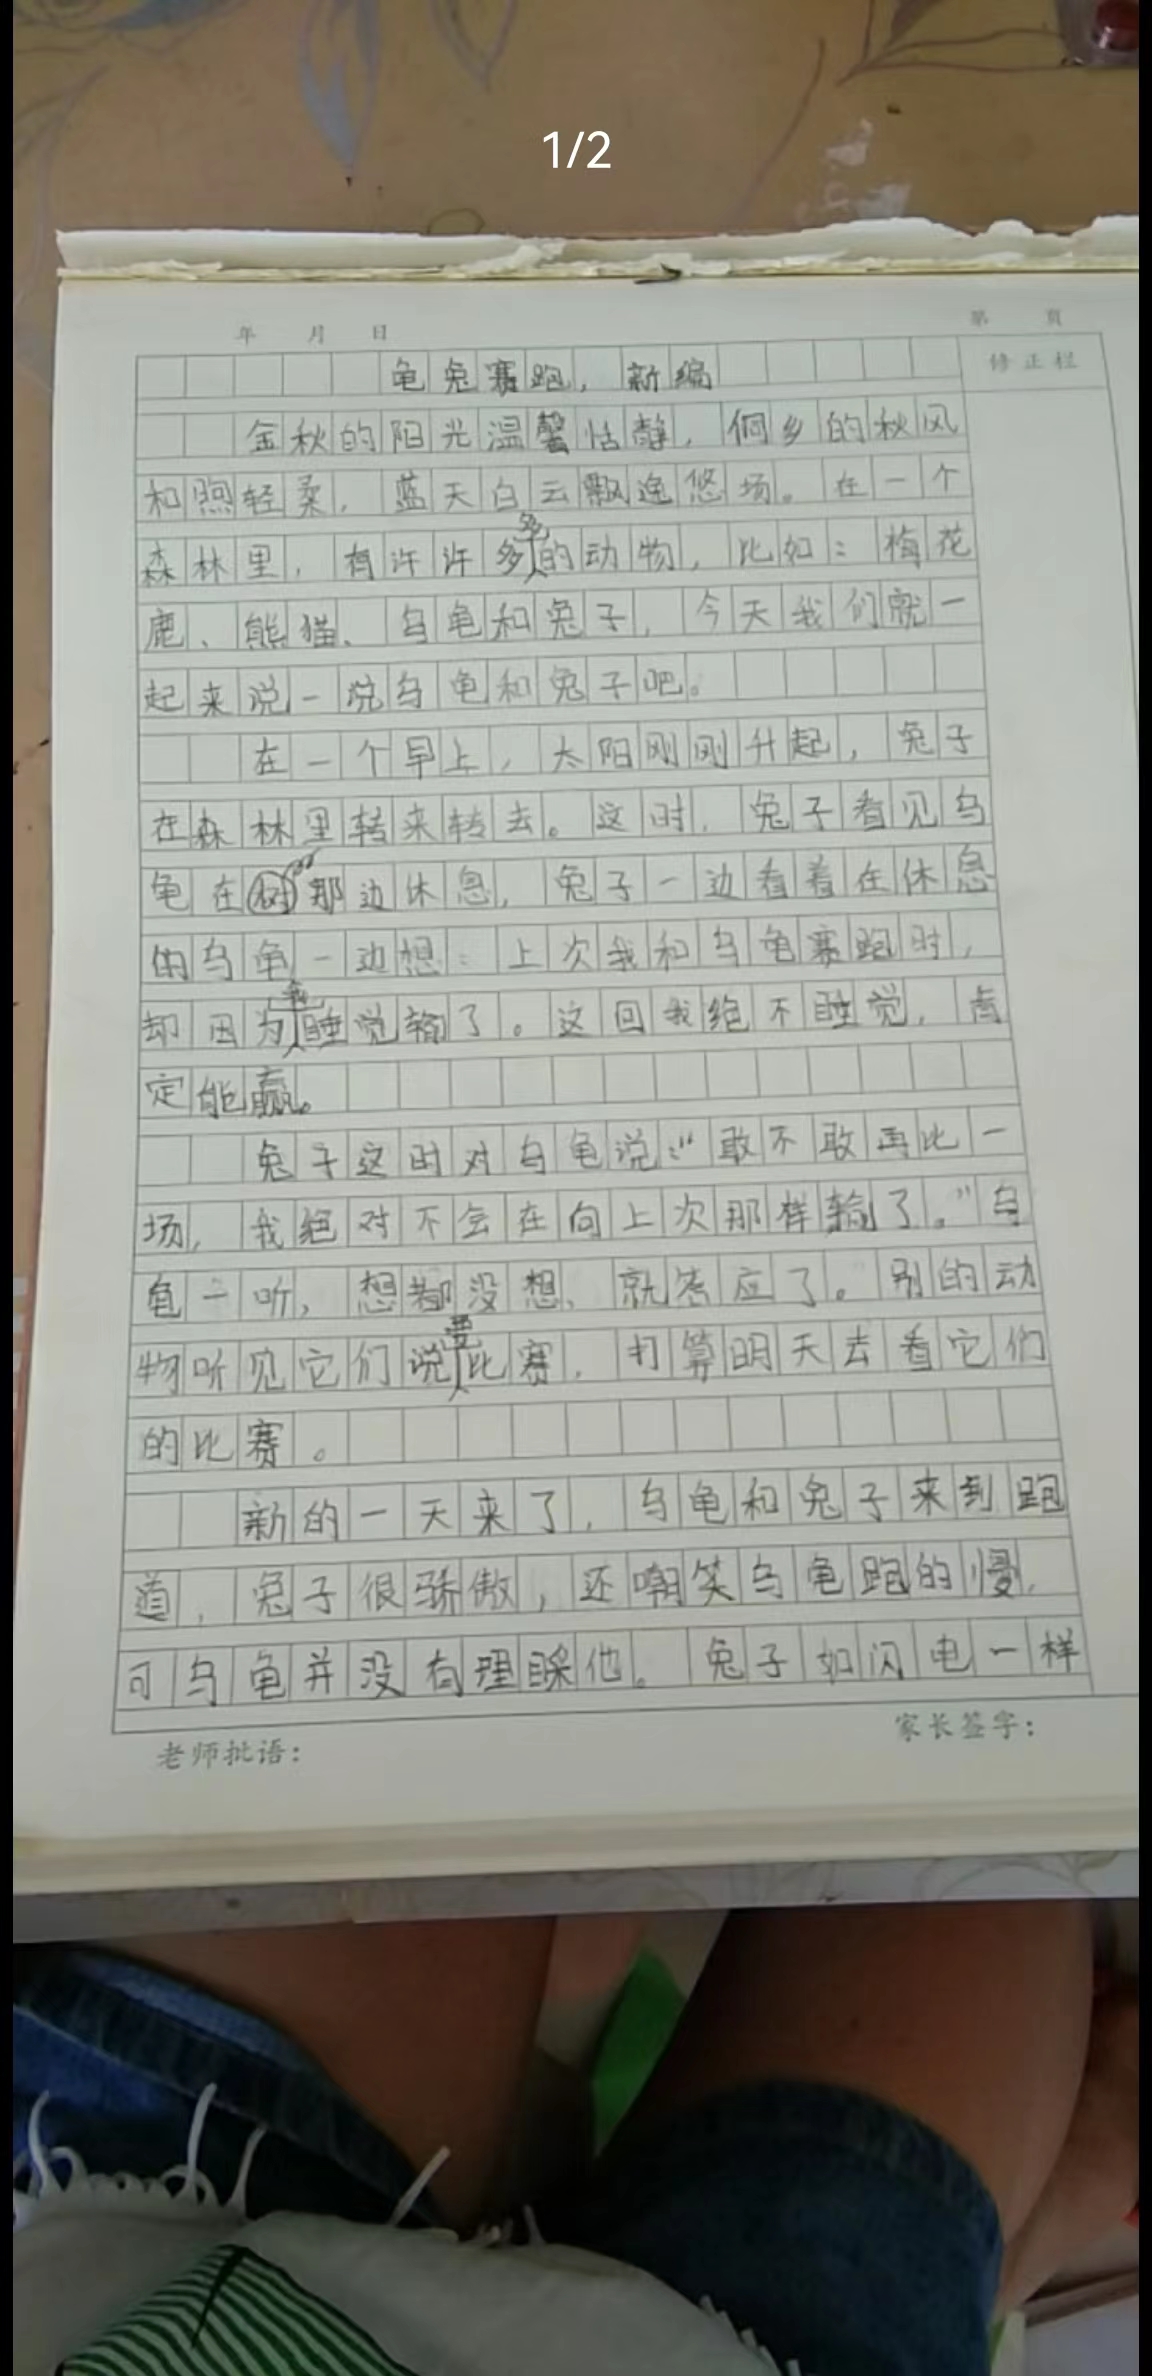 1/2
年 月 日
第 页
修正栏
龟兔赛跑,新编
金秋的阳光温馨恬静,侗乡的秋风
和煦轻柔,蓝天白云飘逸悠场。在一个
森林里,有许许多多的动物,比如:梅花
鹿、熊猫、乌龟和兔子,今天我们就一
起来说一说乌龟和兔子吧。
在一个早上,太阳刚刚升起,兔子
在森林里转来转去。这时,兔子看见乌
龟在那边休息,兔子一边看着在休息
的乌龟一边想:上次我和乌龟赛跑时,
却因为我睡觉输了。这回我绝不睡觉,肯
定能赢。
兔子这时对乌龟说:“敢不敢再比一
场,我绝对不会在向上次那样输了。”乌
龟一听,想都没想、就答应了。别的动
物听见它们说要比赛,打算明天去看它们
的比赛。
新的一天来了,乌龟和兔子来到跑
道,兔子很骄傲,还嘲笑乌龟跑的慢,
可乌龟并没有理睬他。兔子如闪电一样
老师批语:
家长签字: